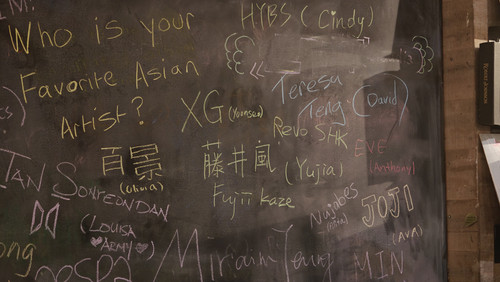 Who is your
Favorite Asian
Artist?
HYBS (Cindy)
Teresa
Teng (David)
XG (Yoonseo)
Revo SHK
EVE
(Anthony)
百景
(Olivia)
藤井風 (Yujia)
Fujii kaze
TAN SONYEONDAN
(LOUISA
♥ARMY♥)
Nujabes
JOJI
(AVA)
Miriam Yeung
MIN